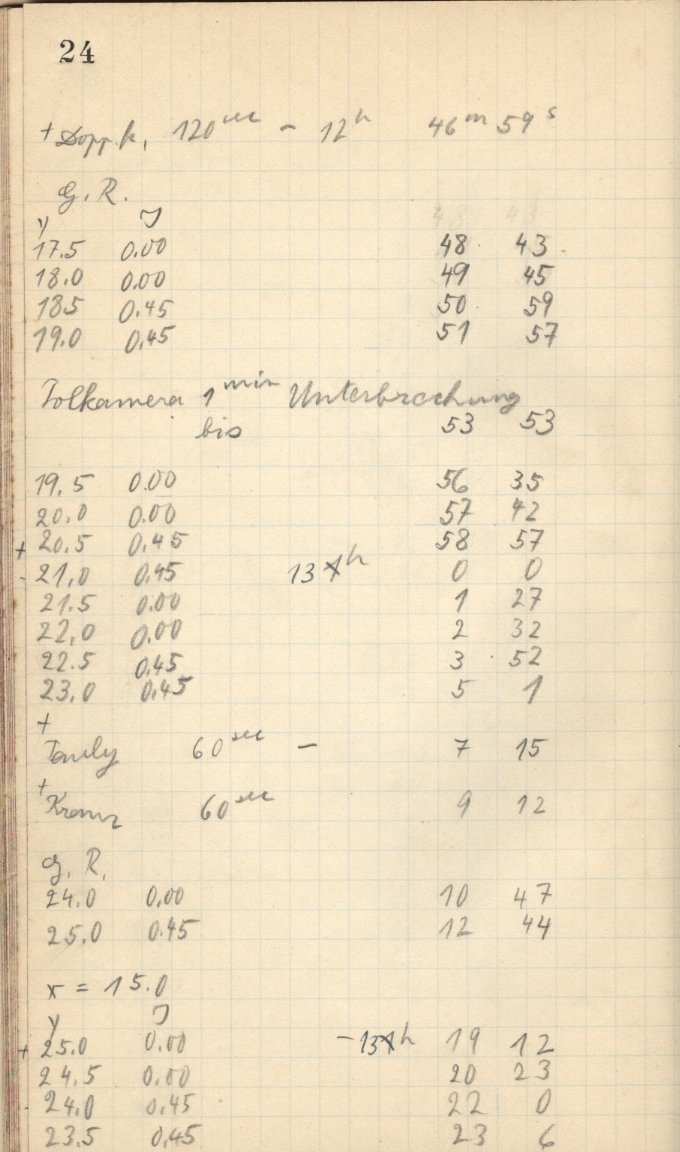 24
+ Dopp. k. 120 sec - 12 h 46 m 59 s
G. R.
y J
17.5 0.00 48 43
18.0 0.00 49 45
18.5 0.45 50 59
19.0 0.45 51 57
Polkamera 1 min Unterbrechung
bis 53 53
19.5 0.00 56 35
20.0 0.00 57 42
+ 20.5 0.45 58 57
- 21.0 0.45 13 h 0 0
21.5 0.00 1 27
22.0 0.00 2 32
22.5 0.45 3 52
23.0 0.45 5 1
+
60 sec - 7 15
+
Kreuz 60 sec 9 12
G. R.
24.0 0.00 10 47
25.0 0.45 12 44
x = 15.0
y J
+ 25.0 0.00 - 13 h 19 12
24.5 0.00 20 23
24.0 0.45 22 0
23.5 0.45 23 6